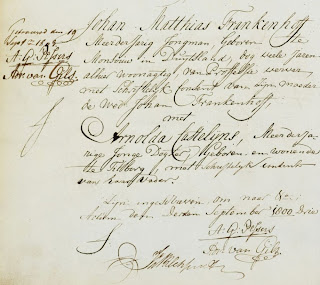 Getrouwd den 19
Sept. 1803
A. G. Pessers
Ant. van Gils
Johan Matthias Frankenhoff
Meerderjarig Jongman, Geboren te
Monbouw in Duytsland, dog veele Jaren
alhier woonagtig, van Professie verwer
met Schriftelyk consent van zyn moeder
de Wed. Johan Frankenhoff
met
Arnolda Catelijns, Meerderja-
rige Jonge Dogter, Geboren en woonende
te Tilborg, met Schriftelyk consent
van haren Vader.
Zyn ingeschreven om naar
Actum dezen September 1800 Drie
A. G. Pessers
Ant. van Gils